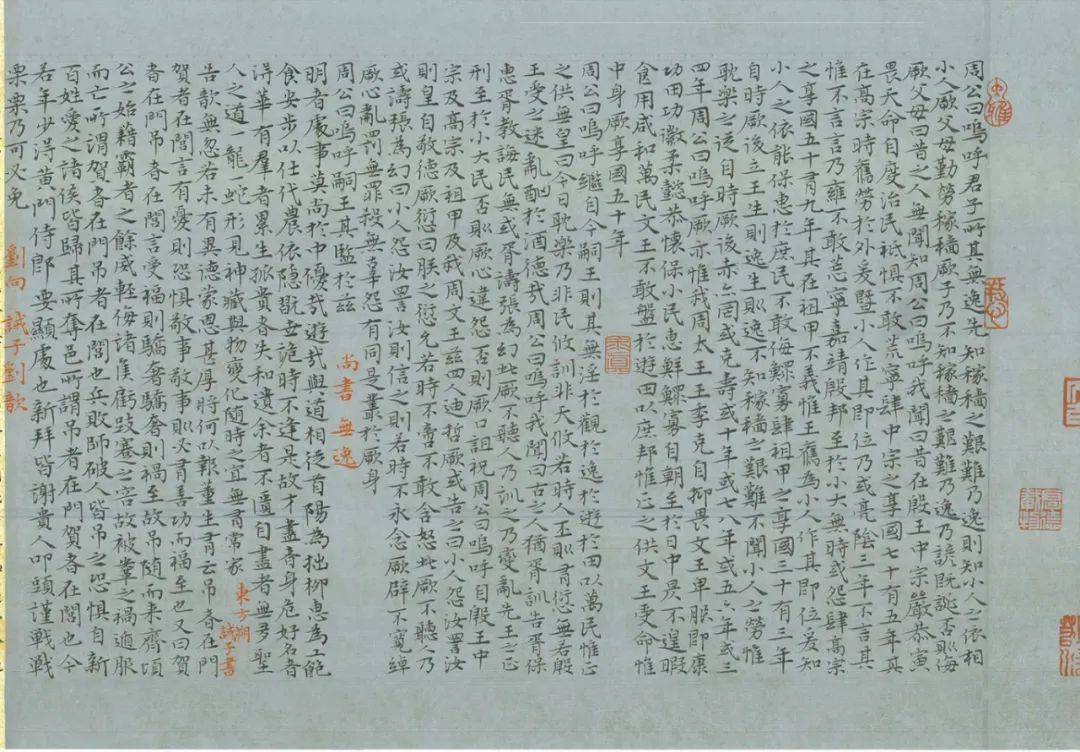 周公曰嗚呼君子所其無逸先知稼穡之艱難乃逸則知小人之依相
小人厥父母勤勞稼穡厥子乃不知稼穡之艱難乃逸乃諺既誕否則侮
厥父母曰昔之人無聞知周公曰嗚呼我聞曰昔在殷王中宗嚴恭寅
畏天命自度治民祗懼不敢荒寧肆中宗之享國七十有五年其
在高宗時舊勞於外爰暨小人作其即位乃或亮陰三年不言其
惟不言言乃雍不敢荒寧嘉靖殷邦至於小大無時或怨肆高宗
之享國五十有九年其在祖甲不義惟王舊為小人作其即位爰知
小人之依能保惠於庶民不敢侮鰥寡肆祖甲之享國三十有三年
自時厥後立王生則逸生則逸不知稼穡之艱難不聞小人之勞惟
耽樂之從自時厥後亦罔或克壽或十年或七八年或五六年或三
四年周公曰嗚呼厥亦惟我周太王王季克自抑畏文王卑服即康
功田功徽柔懿恭懷保小民惠鮮鰥寡自朝至於日中昃不遑暇
食用咸和萬民文王不敢盤於遊田以庶邦惟正之供文王受命惟
中身厥享國五十年
周公曰嗚呼繼自今嗣王則其無淫於觀於逸於遊於田以萬民惟正
之供無皇曰今日耽樂乃非民攸訓非天攸若時人丕則有愆無若殷
王受之迷亂酗於酒德哉周公曰嗚呼我聞曰古之人猶胥訓告胥保
惠胥教誨民無或胥譸張為幻此厥不聽人乃訓之乃變亂先王之正
刑至於小大民否則厥心違怨否則厥口詛祝周公曰嗚呼自殷王中
宗及高宗及祖甲及我周文王茲四人迪哲厥或告之曰小人怨汝詈汝
則皇自敬德厥愆曰朕之愆允若時不啻不敢含怒此厥不聽人乃
或譸張為幻曰小人怨汝詈汝則信之則若時不永念厥辟不寬綽
厥心亂罰無罪殺無辜怨有同是叢於厥身
周公曰嗚呼嗣王其監於茲
尚書無逸
明者處事莫尚於中優哉游哉與道相從首陽為拙柳惠為工飽
食安步以仕代農依隱翫世詭時不逢是故才盡者身危好名者
得華有羣者累生孤貴者失和遺余者不匱自盡者無多聖
人之道一龍一蛇形見神藏與物變化隨時之宜無有常家
東方朔
誡子書
告歆無忽若未有異德蒙恩甚厚將何以報董生有云吊者在門
賀者在閭言有憂則恐懼敬事敬事則必有善功而福至也又曰賀
者在門吊者在閭言受福則驕奢驕奢則禍至故吊隨而來齊頃
公之始藉霸者之餘威輕侮諸侯虧跂蹇之容故被鞌之禍遁服
而亡所謂賀者在門吊者在閭也兵敗師破人皆吊之恐懼自新
百姓愛之諸侯皆歸其所奪邑所謂吊者在門賀者在閭也今
若年少得黃門侍郎要顯處也新拜皆謝貴人叩頭謹戰戰
栗栗乃可必免
劉向誡子劉歆